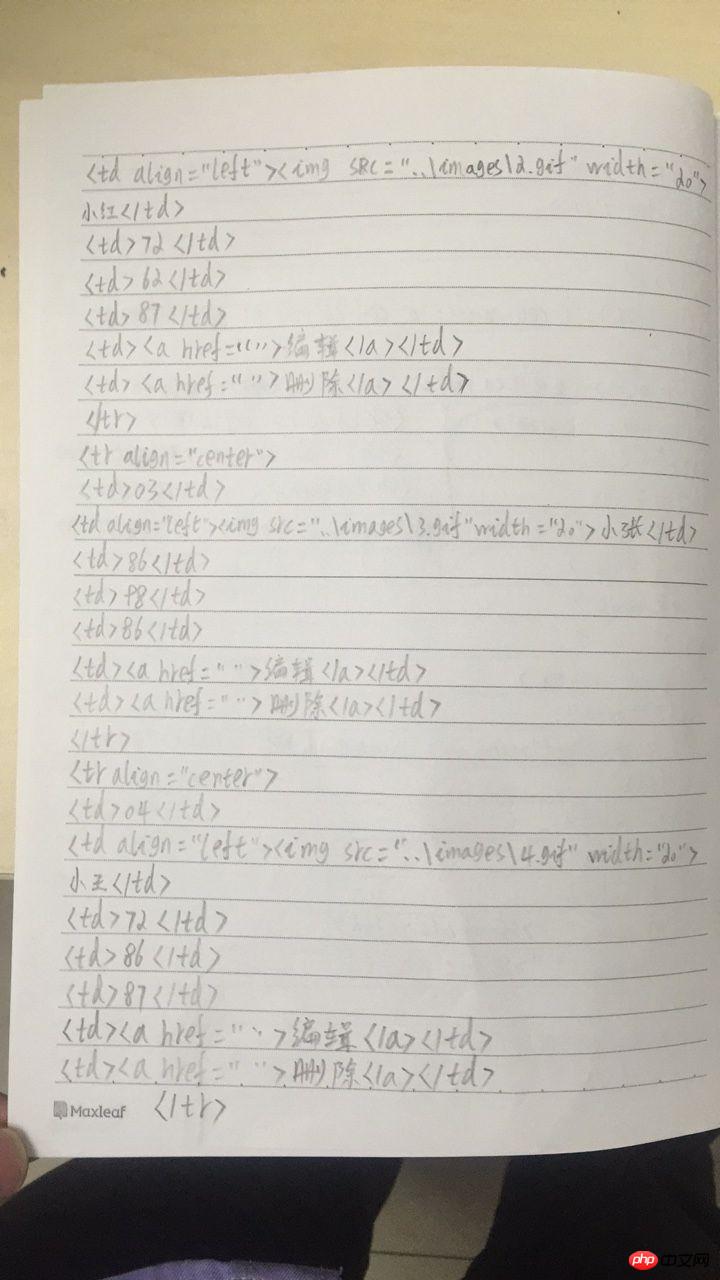 <td align="left"><img src="..\images\2.gif" width="20">
小红</td>
<td>72</td>
<td>62</td>
<td>87</td>
<td><a href="">编辑</a></td>
<td><a href="">删除</a></td>
</tr>
<tr align="center">
<td>03</td>
<td align="left"><img src="..\images\3.gif" width="20">小张</td>
<td>86</td>
<td>98</td>
<td>86</td>
<td><a href="">编辑</a></td>
<td><a href="">删除</a></td>
</tr>
<tr align="center">
<td>04</td>
<td align="left"><img src="..\images\4.gif" width="20">
小王</td>
<td>72</td>
<td>86</td>
<td>87</td>
<td><a href="">编辑</a></td>
<td><a href="">删除</a></td>
</tr>
Maxleaf
php中文网